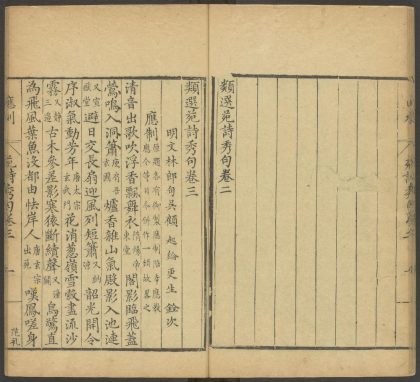 類選苑詩秀句卷二
類選苑詩秀句卷三
明文林郎句吳顧起綸更生銓次
應制
清音出歌吹浮香飄舞衣 閣影臨飛蓋
鶯鳴入洞簫 庾肩吾 爐香雜山氣殿影入池連
避日交長扇迎風列短簫 韶光開令
序淑氣動芳年 唐太宗玄武門 花消蔥嶺雪縠盡流沙
霧 古木參差影寒猿斷續聲 鳥驚直
為飛風葉魚沒都由怯岸人 唐玄宗出苑 嘆鳳嗟身
應制 苑詩秀句卷三 一